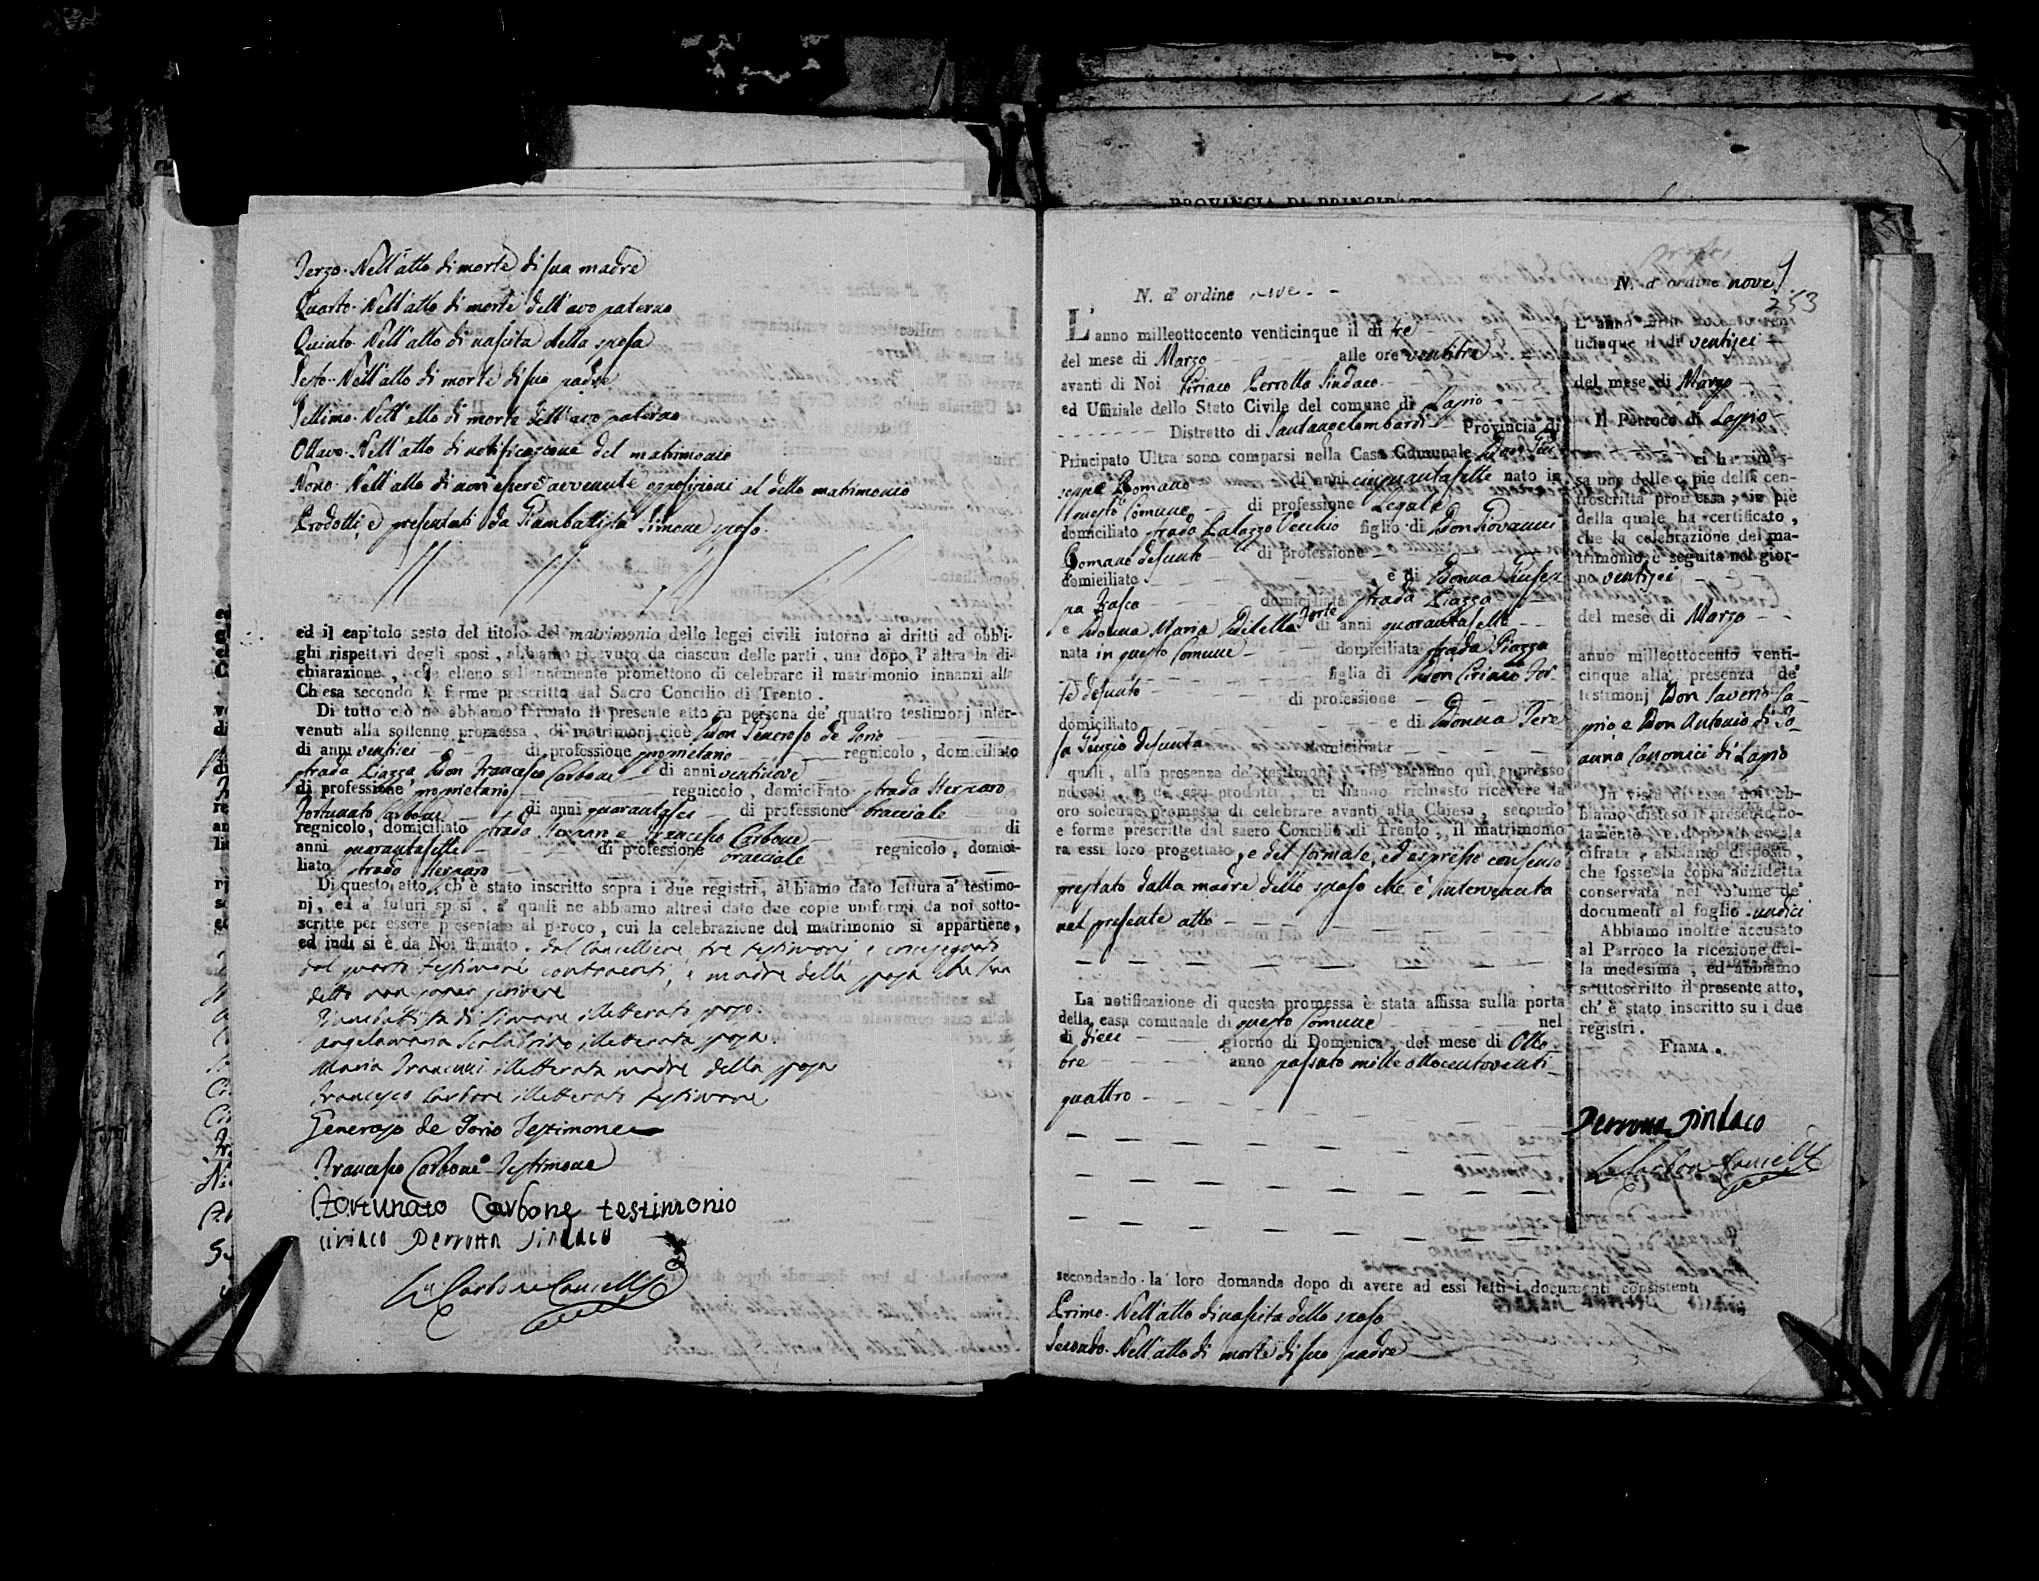 Terzo. Nell'atto di morte di sua madre
Quarto. Nell'atto di morte dell'avo paterno
Quinto. Nell'atto di nascita della sposa
Sesto. Nell'atto di morte di suo padre
Settimo. Nell'atto di morte dell'avo paterno
Ottavo. Nell'atto di notificazione del matrimonio
Nono. Nell'atto di non essere avvenute opposizioni al detto matrimonio
Prodotti, e presentati da Giambattista Simone sposo.
ed il capitolo sesto del titolo del matrimonio delle leggi civili intorno ai dritti ad obbli-
ghi rispettivi degli sposi, abbiamo ricevuto da ciascun delle parti, una dopo l'altra la di-
chiarazione, che elleno solennemente promettono di celebrare il matrimonio innanzi alla
Chiesa secondo le forme prescritte dal Sacro Concilio di Trento.
Di tutto ciò ne abbiamo formato il presente atto in persona de' quattro testimonj inter-
venuti alla sollenne promessa, di matrimonj cioè Don Generoso de Iorio
di anni ventisei di professione proprietario regnicolo, domiciliato
strada Piazza, Don Francesco Carbone di anni ventinove
di professione proprietario regnicolo, domiciliato strada
Fortunato Carbone di anni quarantasei di professione bracciale
regnicolo, domiciliato strada e Francesco Carbone di
anni quarantasette di professione bracciale regnicolo, domici-
liato strada
Di questo atto, ch'è stato inscritto sopra i due registri, abbiamo dato lettura a' testimo-
nj, ed a' futuri sposi, a' quali ne abbiamo altresì date due copie uniformi da noi sotto-
scritte per essere presentate al paroco, cui la celebrazione del matrimonio si appartiene,
ed indi si è da Noi firmato, dal Cancelliere, tre testimoni,
dal quarto testimone contraenti, e madre della sposa che han
detto non saper scrivere
Giambattista di Simone illetterato sposo.
Angelamaria illetterata sposa.
Maria illetterata madre della sposa
Francesco Carbone illetterato testimone
Generoso de Iorio Testimone
Francesco Carbone Testimone
Fortunato Carbone testimonio
Ciriaco Perrotta Sindaco
Carbone Cancell.
N. d'ordine nove
L'anno milleottocento venticinque il dì tre
del mese di Marzo alle ore ventitre
avanti di Noi Ciriaco Perrotta Sindaco
ed Uffiziale dello Stato Civile del comune di Lapio
Distretto di Santangelombardi Provincia di
Principato Ultra sono comparsi nella Casa Comunale Don Giu
seppe Romano di anni cinquantasette nato in
questo Comune di professione Legale
domiciliato strada Palazzo Vecchio figlio di Don Giovanni
Romano defunto di professione
domiciliato, e di Donna Giusep
pa domiciliata strada Piazza
e Donna Maria Forte di anni quarantasette
nata in questo Comune domiciliata strada Piazza
figlia di Don Ciriaco For
te defunto di professione
domiciliato e di Donna Tere
sa defunta domiciliata
quali, alla presenza de' testimonj, che saranno qui appresso
indicati, e da essi prodotti, ci hanno richiesto ricevere la
oro solenne promessa di celebrare avanti alla Chiesa, secondo
e forme prescritte dal sacro Concilio di Trento, il matrimonio
ra essi loro progettato, e del formale, ed espresso consenso
prestato dalla madre dello sposo che è intervenuta
nel presente atto
La notificazione di questa promessa è stata affissa sulla porta
della casa comunale di questo Comune nel
dì dieci giorno di Domenica, del mese di Otto
bre anno passato mille ottocentoventi
quattro
secondando la loro domanda dopo di avere ad essi letti i documenti consistenti
Primo. Nell'atto di nascita dello sposo
Secondo. Nell'atto di morte di suo padre
9
N. d'ordine nove
253
L'anno milleottocento ven-
ticinque il dì ventisei
del mese di Marzo
Il Parroco di Lapio
ci ha rimes-
sa una delle copie della con-
troscritta promessa, in piè
della quale ha certificato,
che la celebrazione del ma-
trimonio è seguita nel gior-
no ventisei
del mese di Marzo
anno milleottocento venti-
cinque alla presenza de'
testimonj Don Saverio Ca-
prio, e Don Antonio di Jo-
anna Canonici di Lapio
In vista di essa noi ab-
biamo disteso il presente no-
tamento, e dopo di averla
cifrata, abbiamo disposto,
che fosse la copia anzidetta
conservata nel volume de'
documenti al foglio undici
Abbiamo inoltre accusato
al Parroco la ricezione del-
la medesima, ed abbiamo
sotttoscritto il presente atto,
ch'è stato inscritto su i due
registri.
FIRMA.
Perrotta Sindaco
Carbone Cancell.
PROVINCIA DI PRINCIPATO